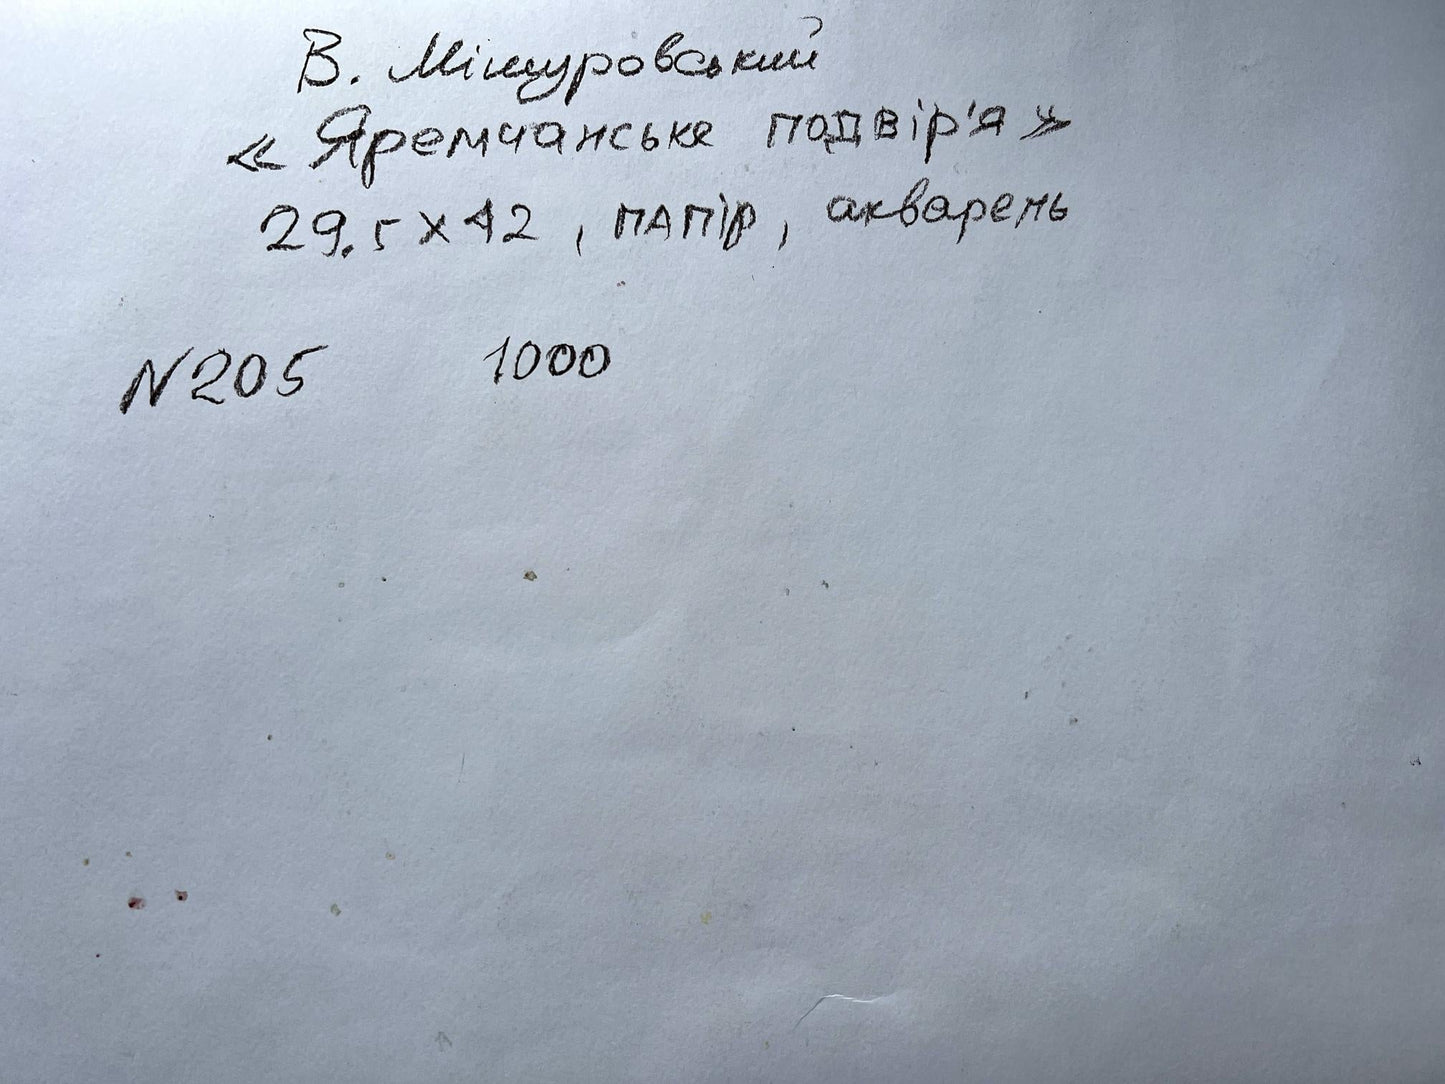 В. Мішуровський
« Яремчанське подвір'я »
29.5 х 42 , папір , акварель
N205 1000